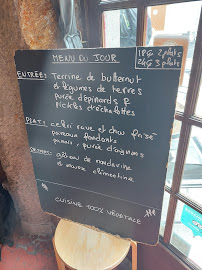 MENU DU JOUR
19€ 2 plats
24€ 3 plats
ENTRÉE: Terrine de butternut
et légumes de terres
purée d'épinards &
pickles d'échalottes
PLAT: céleri rave et chou frisé
poireaux fondants
panais, purée d'oignons
gâteau de mandarine
et clémentine
CUISINE 100% VÉGÉTALE